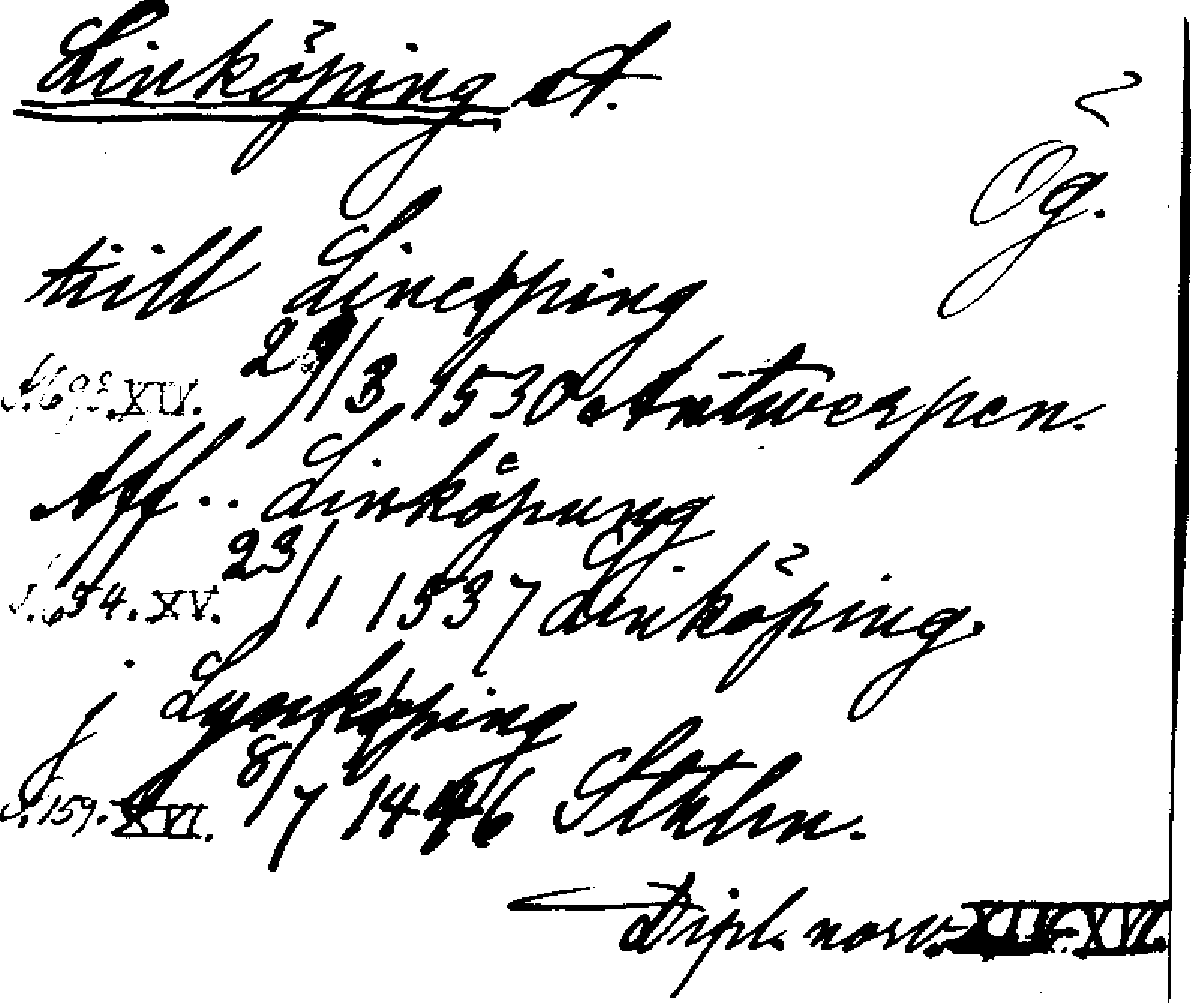 Linköping st.
Ög.
till Lincøping
XV. 29/3 1530 Antwerpen.
Aff.. Linköpung
XV. 23/1 1537 Linköping.
j Lynkøping
S. 159. XVI. 8/7 1446 Sthlm.
Dipl. norv. XVI.